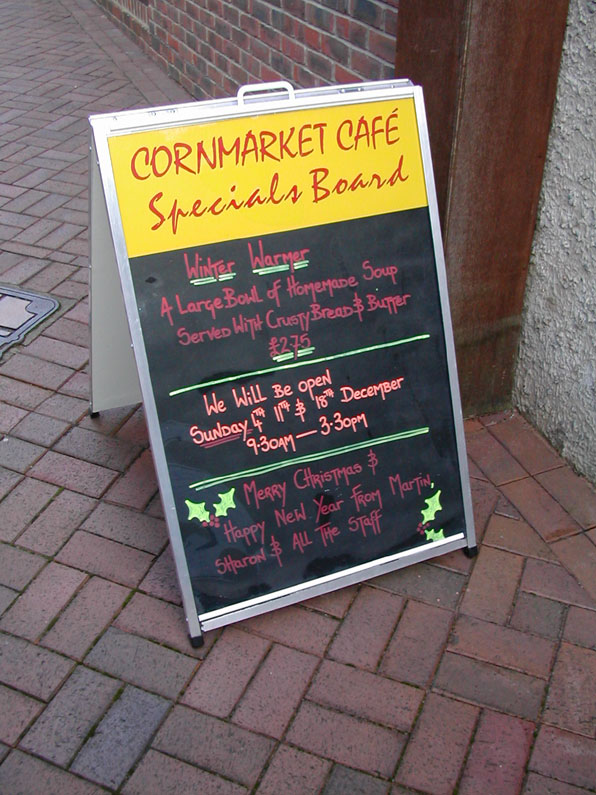 CORNMARKET CAFÉ
Specials Board
Winter Warmer
A Large Bowl of Homemade Soup
Served With Crusty Bread & Butter
£2.75
We Will Be open
Sunday 4TH 11TH & 18TH December
9.30am — 3.30pm
Merry Christmas &
Happy New Year From Martin,
Sharon & All The Staff